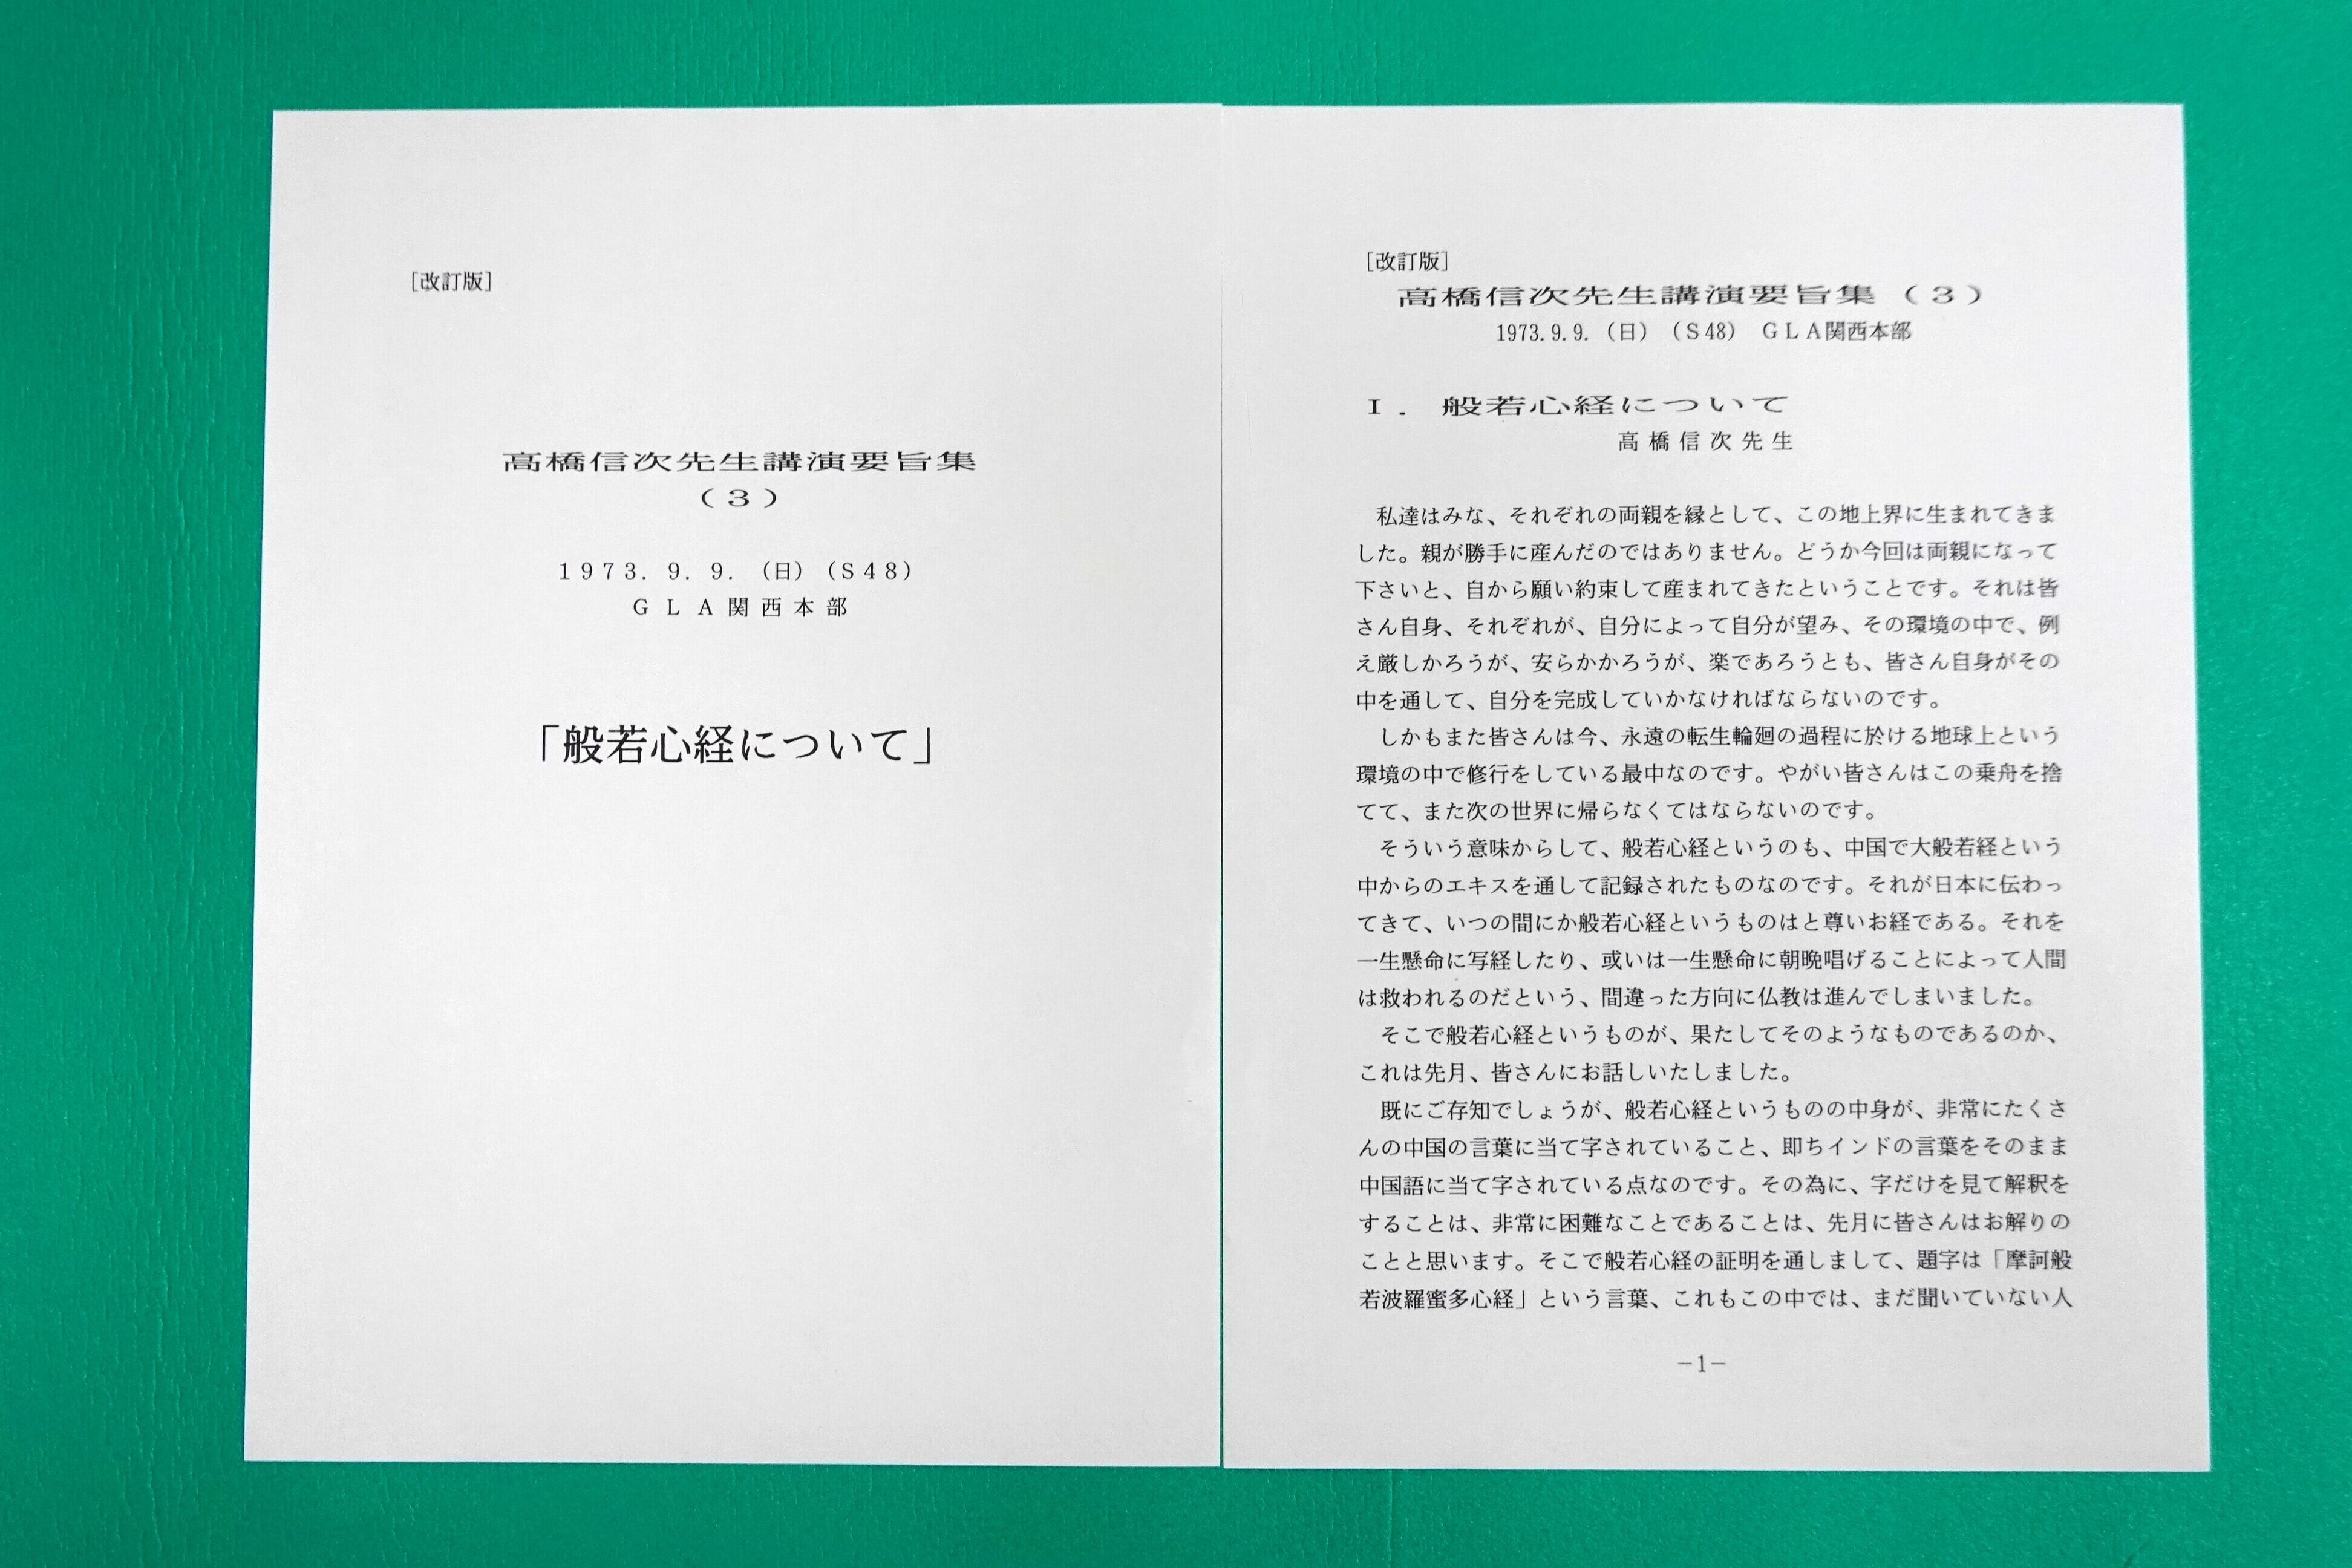 ［改訂版］
高橋信次先生講演要旨集
（３）
１９７３．９．９．（日）（Ｓ４８）
ＧＬＡ関西本部
「般若心経について」
［改訂版］
高橋信次先生講演要旨集（３）
1973.9.9.（日）（Ｓ48）　ＧＬＡ関西本部
Ｉ．般若心経について
高橋信次先生
私達はみな、それぞれの両親を縁として、この地上界に生まれてきま
した。親が勝手に産んだのではありません。どうか今回は両親になって
下さいと、自から願い約束して産まれてきたということです。それは皆
さん自身、それぞれが、自分によって自分が望み、その環境の中で、例
え厳しかろうが、安らかかろうが、楽であろうとも、皆さん自身がその
中を通して、自分を完成していかなければならないのです。
しかもまた皆さんは今、永遠の転生輪廻の過程に於ける地球上という
環境の中で修行をしている最中なのです。やがい皆さんはこの乗舟を捨
てて、また次の世界に帰らなくてはならないのです。
そういう意味からして、般若心経というのも、中国で大般若経という
中からのエキスを通して記録されたものなのです。それが日本に伝わっ
てきて、いつの間にか般若心経というものはと尊いお経である。それを
一生懸命に写経したり、或いは一生懸命に朝晩唱げることによって人間
は救われるのだという、間違った方向に仏教は進んでしまいました。
そこで般若心経というものが、果たしてそのようなものであるのか、
これは先月、皆さんにお話しいたしました。
既にご存知でしょうが、般若心経というものの中身が、非常にたくさ
んの中国の言葉に当て字されていること、即ちインドの言葉をそのまま
中国語に当て字されている点なのです。その為に、字だけを見て解釈を
することは、非常に困難なことであることは、先月に皆さんはお解りの
ことと思います。そこで般若心経の証明を通しまして、題字は「摩訶般
若波羅蜜多心経」という言葉、これもこの中では、まだ聞いていない人
－1－